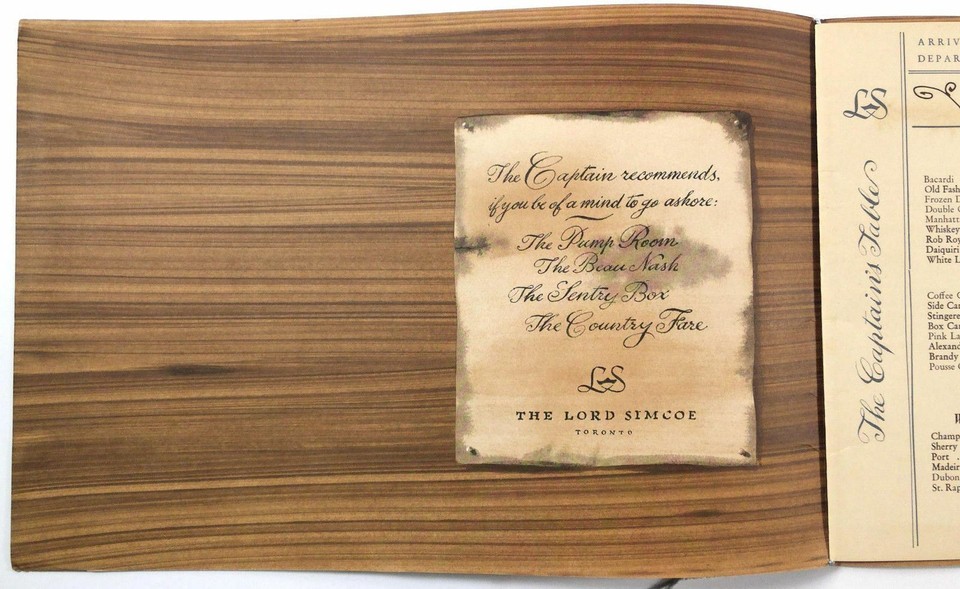 The Captain recommends,
if you be of a mind to go ashore:
The Pump Room
The Beau Nash
The Sentry Box
The Country Fare
LS
THE LORD SIMCOE
TORONTO
LS
The Captain's Table
ARRIV
DEPAR
Bacardi
Old Fash
Frozen D
Double
Manhatt
Whiskey
Rob Roy
Daiquiri
White L
Coffee
Side Car
Stingere
Box Car
Pink La
Alexand
Brandy
Pousse
Champ
Sherry
Port .
Madeir
Dubon
St. Rap